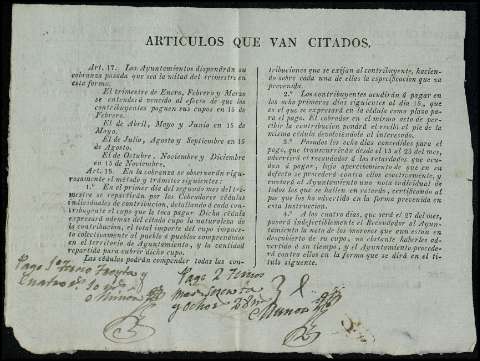 ARTICULOS QUE VAN CITADOS.
Art. 17. Los Ayuntamientos dispondrán su
cobranza pasada que sea la mitad del trimestre en
esta forma.
El trimestre de Enero, Febrero y Marzo
se entenderá vencido al efecto de que los
contribuyentes paguen sus cupos en 15 de
Febrero.
El de Abril, Mayo y Junio en 15 de
Mayo.
El de Julio, Agosto y Septiembre en 15
de Agosto.
El de Octubre, Noviembre y Diciembre
en 15 de Noviembre.
Art. 19. En la cobranza se observarán rigu-
rosamente el método y trámites siguientes:
1.º En el primer día del segundo mes del tri-
mestre se repartirán por los Cobradores cédulas
individuales de contribucion, detallando á cada con-
tribuyente el cupo que le toca pagar. Dicha cédula
expresará ademas del cálculo la naturaleza de
la contribucion, el total importe del cupo impues-
to colectivamente al pueblo ó pueblos comprendidos
en el territorio de Ayuntamiento, y la cantidad
repartida para cubrir dicho cupo.
Las cédulas podrán compender todas las con-
tribuciones que se exijan al contribuyente, hacién-
dose sobre cada una de ellas la especificacion que va
prevenida.
2.º Los contribuyentes acudirán á pagar en
los ocho primeros dias siguientes al dia 15, que
es el que se expresará en la cédula como plazo pa-
ra el pago. El cobrador en el mismo acto de per-
cibir la contribucion pondrá el recibí al pie de la
misma cédula devolviéndola al interesado.
3.º Pasados los ocho dias concedidos para el
pago, que transcurrirán desde el 15 al 23 del mes,
advertirá el recaudador á los retardados que acu-
dan á pagar, bajo apercibimiento de que en su
defecto se procederá contra ellos executivamente, y
enviará al Ayuntamiento una nota individual de
todos los que se hallen en retardo, certificando al
pie que los ha advertido en la forma prevenida en
esta Instruccion.
4.º A los cuatro dias, que será el 27 del mes,
pasará indefectiblemente el Recaudador al Ayun-
tamiento la nota de los morosos que aun estan en
descubierto de su cupo, no obstante haberles ad-
vertido á su tiempo, y el Ayuntamiento procede-
rá contra ellos en la forma que se dirá en el tí-
tulo siguiente.
Pago 1.º y
Pago 2 Tercio
y Ocho